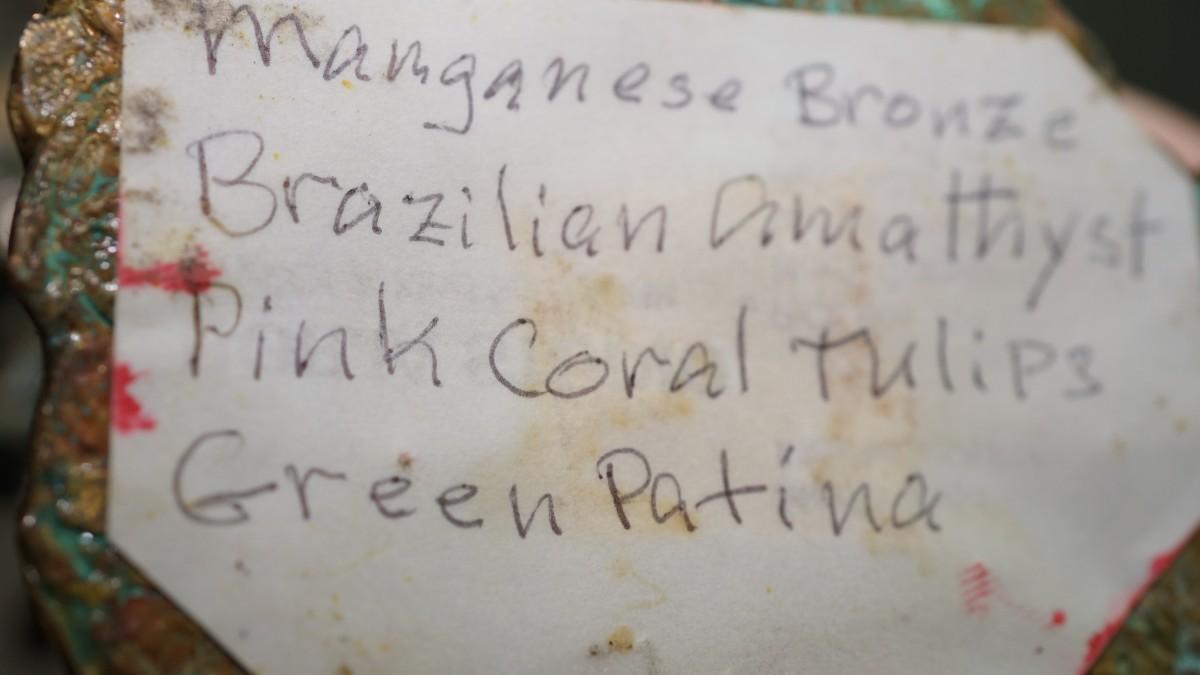 Manganese Bronze
Brazilian Amathyst
Pink Coral Tulips
Green Patina